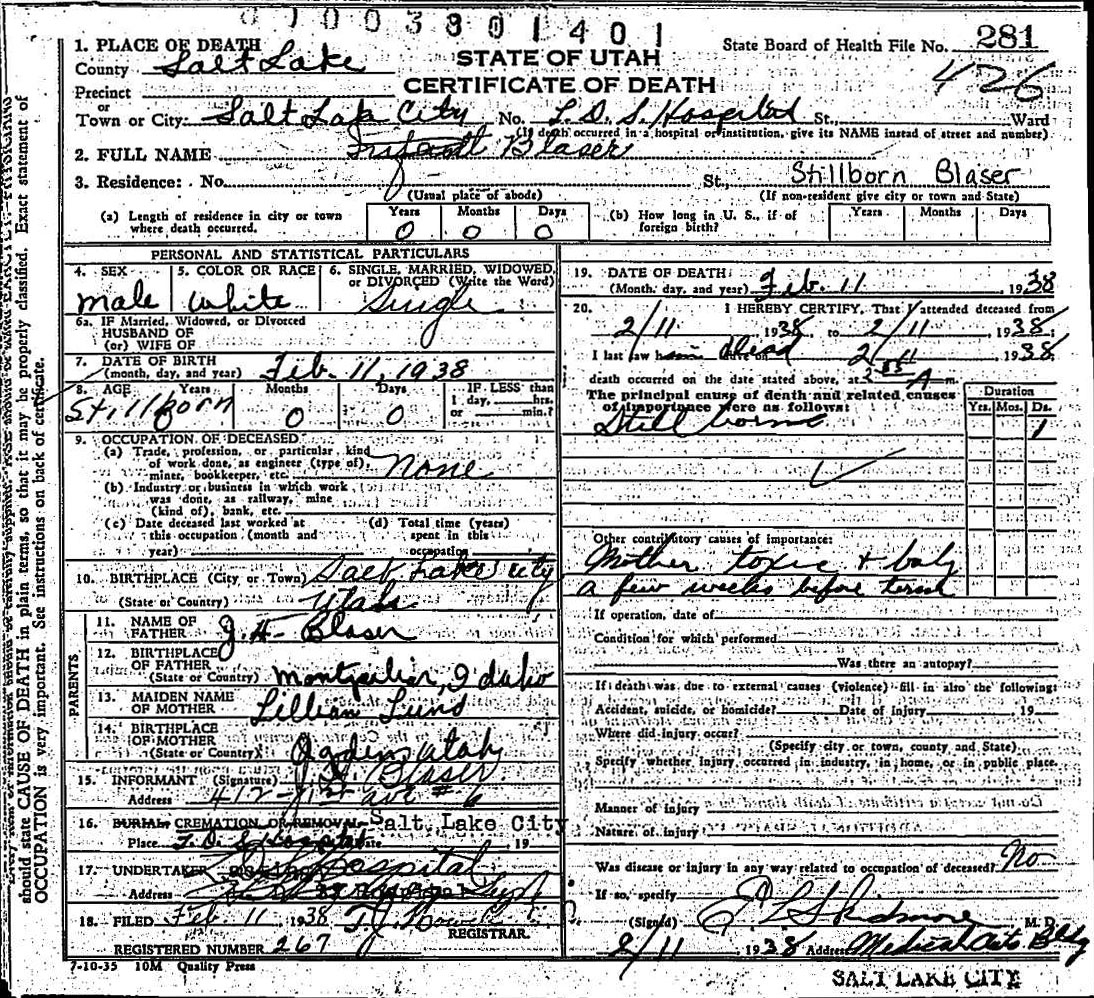 0 1 0 0 3 8 0 1 4 0 1
1. PLACE OF DEATH
STATE OF UTAH
State Board of Health File No. 281
County Salt Lake
CERTIFICATE OF DEATH
426
Precinct
or
Town or City: Salt Lak City No. L. D. S. Hospital St., Ward
(If death occurred in a hospital or institution, give its NAME instead of street and number)
2. FULL NAME Infant Blaser
3. Residence: No. St., Stillborn Blaser
(Usual place of abode) (If non-resident give city or town and State)
(a) Length of residence in city or town where death occurred. Years 0 Months 0 Days 0
(b) How long in U. S., if of foreign birth? Years Months Days
PERSONAL AND STATISTICAL PARTICULARS
4. SEX male
5. COLOR OR RACE White
6. SINGLE, MARRIED, WIDOWED, or DIVORCED (Write the Word) Single
6a. IF Married, Widowed, or Divorced
HUSBAND OF
(or) WIFE OF
7. DATE OF BIRTH
(month, day, and year) Feb. 11, 1938
8. AGE Years Stillborn Months 0 Days 0
IF LESS than
1 day, hrs.
or min.?
9. OCCUPATION OF DECEASED
(a) Trade, profession, or particular kind
of work done, as engineer (type of),
miner, bookkeeper, etc. None
(b) Industry or business in which work
was done, as railway, mine
(kind of), bank, etc.
(c) Date deceased last worked at
this occupation (month and
year)
(d) Total time (years)
spent in this
occupation
10. BIRTHPLACE (City or Town) Salt Lake City
(State or Country) Utah
PARENTS
11. NAME OF
FATHER J. H. Blaser
12. BIRTHPLACE
OF FATHER
(State or Country) Montpelier, Idaho
13. MAIDEN NAME
OF MOTHER Lillian Lund
14. BIRTHPLACE
OF MOTHER
(State or Country) Ogden Utah
15. INFORMANT (Signature) J. H. Blaser
Address 412 - 1st ave # 6
16. BURIAL, CREMATION OR REMOVAL Salt Lake City
Place L. D. S. Hospital Date 19
17. UNDERTAKER Hospital
Address
18. FILED Feb 11 1938 T. J.
REGISTRAR.
REGISTERED NUMBER 267
7-10-35 10M Quality Press
19. DATE OF DEATH:
(Month, day, and year) Feb. 11, 1938
20. I HEREBY CERTIFY, That I attended deceased from
2/11 1938 to 2/11, 1938;
I last saw him dead on 2/11, 1938
death occurred on the date stated above, at A m.
The principal cause of death and related causes
of importance were as follows:
Duration
Yrs. Mos. Ds.
Still borne 1
Other contributory causes of importance:
Mother toxic + baby
a few weeks before term
If operation, date of
Condition for which performed
Was there an autopsy?
If death was due to external causes (violence) fill in also the following:
Accident, suicide, or homicide? Date of injury , 19
Where did injury occur?
(Specify city or town, county and State)
Specify whether injury occurred in industry, in home, or in public place.
Manner of injury
Nature of injury
Was disease or injury in any way related to occupation of deceased? No
If so, specify
(Signed) E L Skidmore M. D.
2/11, 1938 Address Medical Arts Bldg
SALT LAKE CITY
should state CAUSE OF DEATH in plain terms, so that it may be properly classified. Exact statement of
OCCUPATION is very important. See instructions on back of certificate.